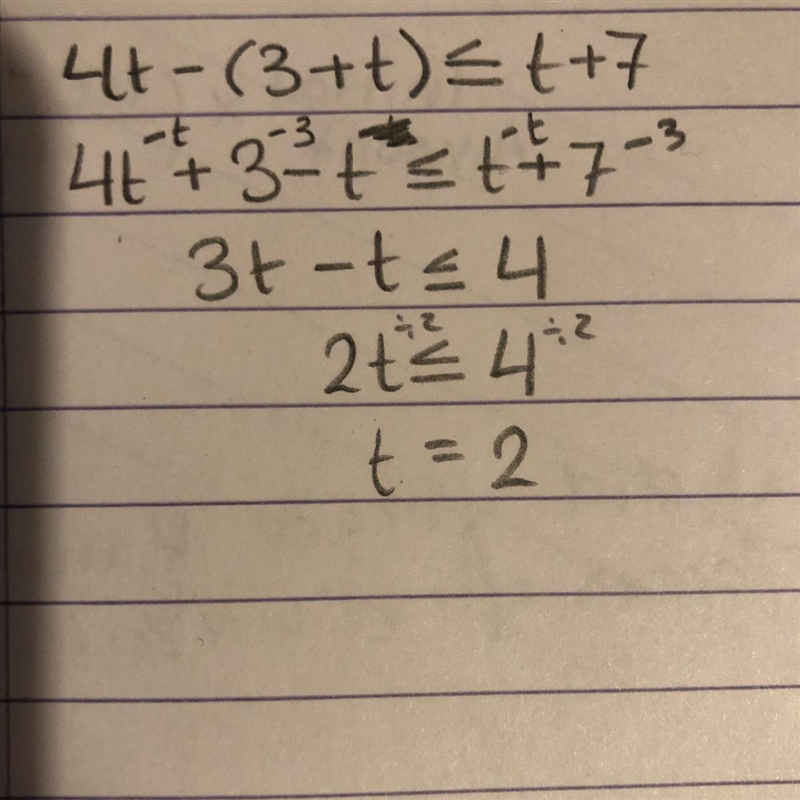 4t - (3+t) ≤ t+7
4t^{-t} + 3^{-3} - t ≤ t^{-t} + 7^{-3}
3t - t ≤ 4
2t^{÷2} ≤ 4^{÷2}
t = 2